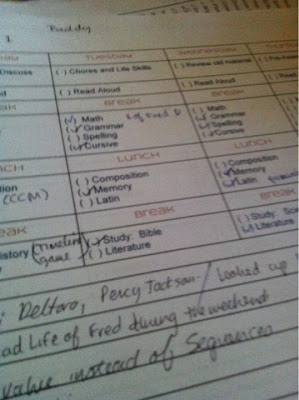 1 Buddy
TUESDAY WEDNESDAY
Discuss ( ) Chores and Life Skills ( ) Review old material
( ) Read Aloud ( ) Read Aloud
BREAK BREAK
(✓) Math Life of Fred ( ) Math
(✓) Grammar (✓) Grammar
( ) Spelling (✓) Spelling
(✓) Cursive (✓) Cursive
LUNCH LUNCH
( ) Composition ( ) Composition
(CCM) (✓) Memory (✓) Memory
( ) Latin (✓) Latin
BREAK BREAK
History (timeline game) (✓) Study: Bible ( ) Study:
( ) Literature (✓) Literature
Deltora, Percy Jackson - Looked up
ad Life of Fred during the weekend
value instead of Sequences